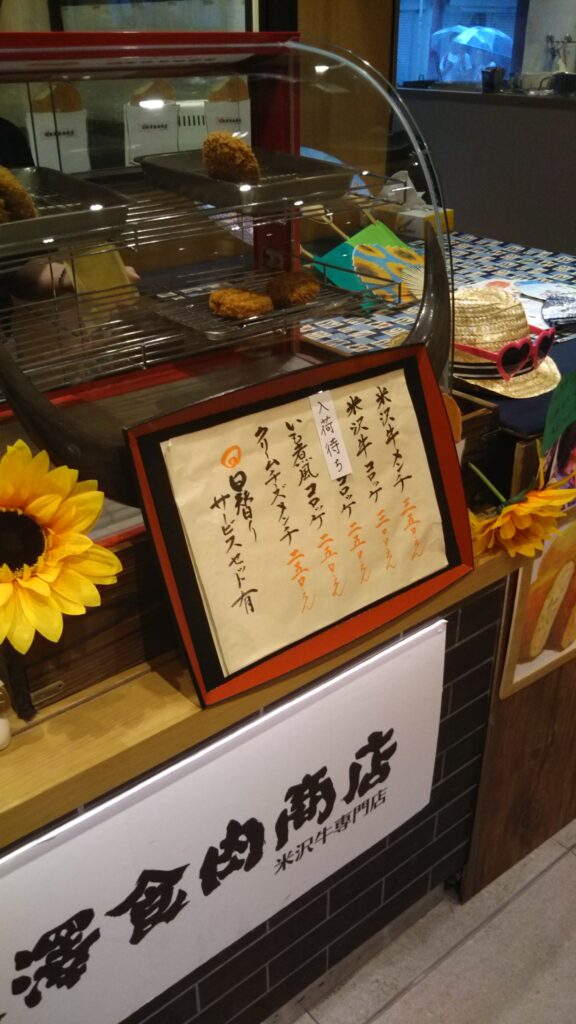 米沢牛メンチ 三五〇え
米沢牛コロッケ 三〇〇え
入荷待ち
コロッケ 二五〇え
いも煮風コロッケ 二五〇え
クリームチーズメンチ 二五〇え
日替り
サービスセット有
食肉商店
米沢牛専門店